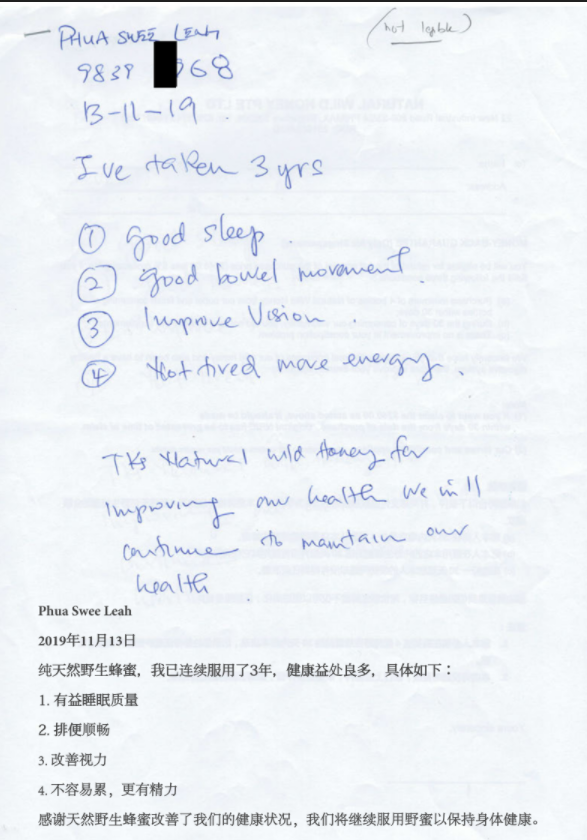 (not legible)
PHUA SWEE LEAH
9839 968
13-11-19
I've taken 3 yrs
① good sleep.
② good bowel movement.
③ Improve Vision.
④ Not tired more energy.
Tks Natural wild Honey for
Improving our health We will
continue to maintain our
health.
Phua Swee Leah
2019年11月13日
纯天然野生蜂蜜，我已连续服用了3年，健康益处良多，具体如下：
1. 有益睡眠质量
2. 排便顺畅
3. 改善视力
4. 不容易累，更有精力
感谢天然野生蜂蜜改善了我们的健康状况，我们将继续服用野蜜以保持身体健康。